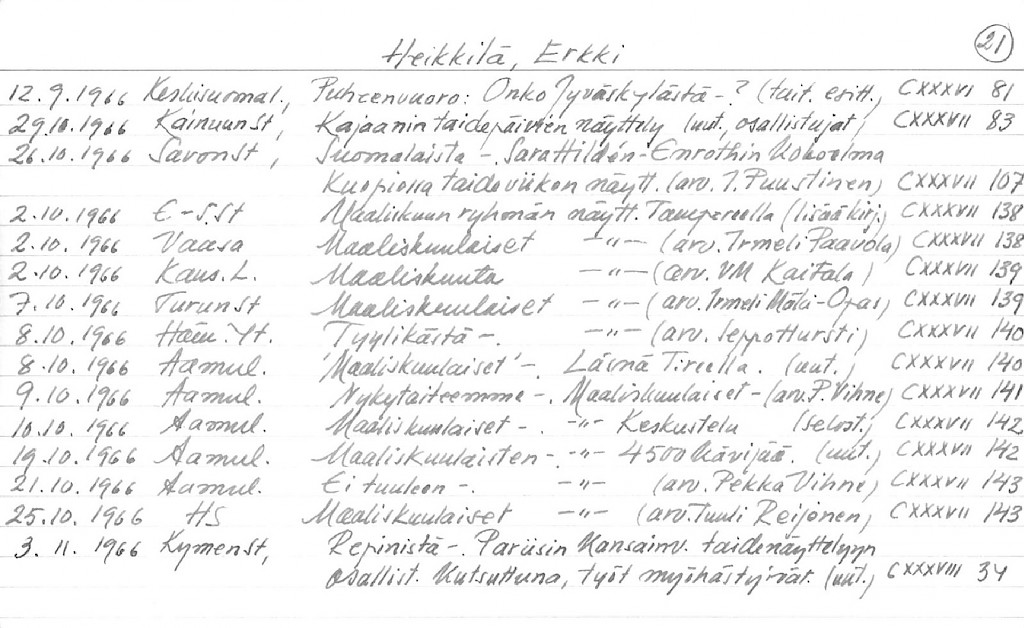 21
Heikkilä, Erkki
12.9.1966 Keskisuomal., Puheenvuoro: Onko Jyväskylästä-? (tait. esitt.) CXXXVI 81
29.10.1966 KainuunSt, Kajaanin taidepäivien näyttely (uut, osallistujat) CXXXVII 83
26.10.1966 SavonSt, Suomalaista -. Sara Hildén-Enrothin Kokoelma
Kuopiossa taideviikon näytt. (arv. J. Puustinen) CXXXVII 107
2.10.1966 E-S.St Maaliskuun ryhmän näytt. Tampereella (lisää kirj.) CXXXVII 138
2.10.1966 Vaasa Maaliskuulaiset -"- (arv. Irmeli Paavola) CXXXVII 138
2.10.1966 Kans.L. Maaliskuuta -"- (arv. VM Kaitala) CXXXVII 139
7.10.1966 TurunSt Maaliskuulaiset -"- (arv. Irmeli Mälä-Opas) CXXXVII 139
8.10.1966 Häm.Yt. Tyylikästä -. -"- (arv. Seppo Hursti) CXXXVII 140
8.10.1966 Aamul. 'Maaliskuulaiset' -. Läsnä Tireella. (uut.) CXXXVII 140
9.10.1966 Aamul. Nykytaiteemme -. Maaliskuulaiset - (arv. P. Vihne) CXXXVII 141
10.10.1966 Aamul. Maaliskuulaiset -. -"- Keskustelu (selost.) CXXXVII 142
19.10.1966 Aamul. Maaliskuulaisten - -"- 4500 kävijää. (uut.) CXXXVII 142
21.10.1966 Aamul. Ei tuuleen -. -"- (arv. Pekka Vihne) CXXXVII 143
25.10.1966 HS Maaliskuulaiset -"- (arv. Tuuli Reijonen) CXXXVII 143
3.11.1966 KymenSt, Repinistä -. Pariisin Kansainv. taidenäyttelyyn
osallist. Kutsuttuna, työt myöhästyivät. (uut.) CXXXVIII 34